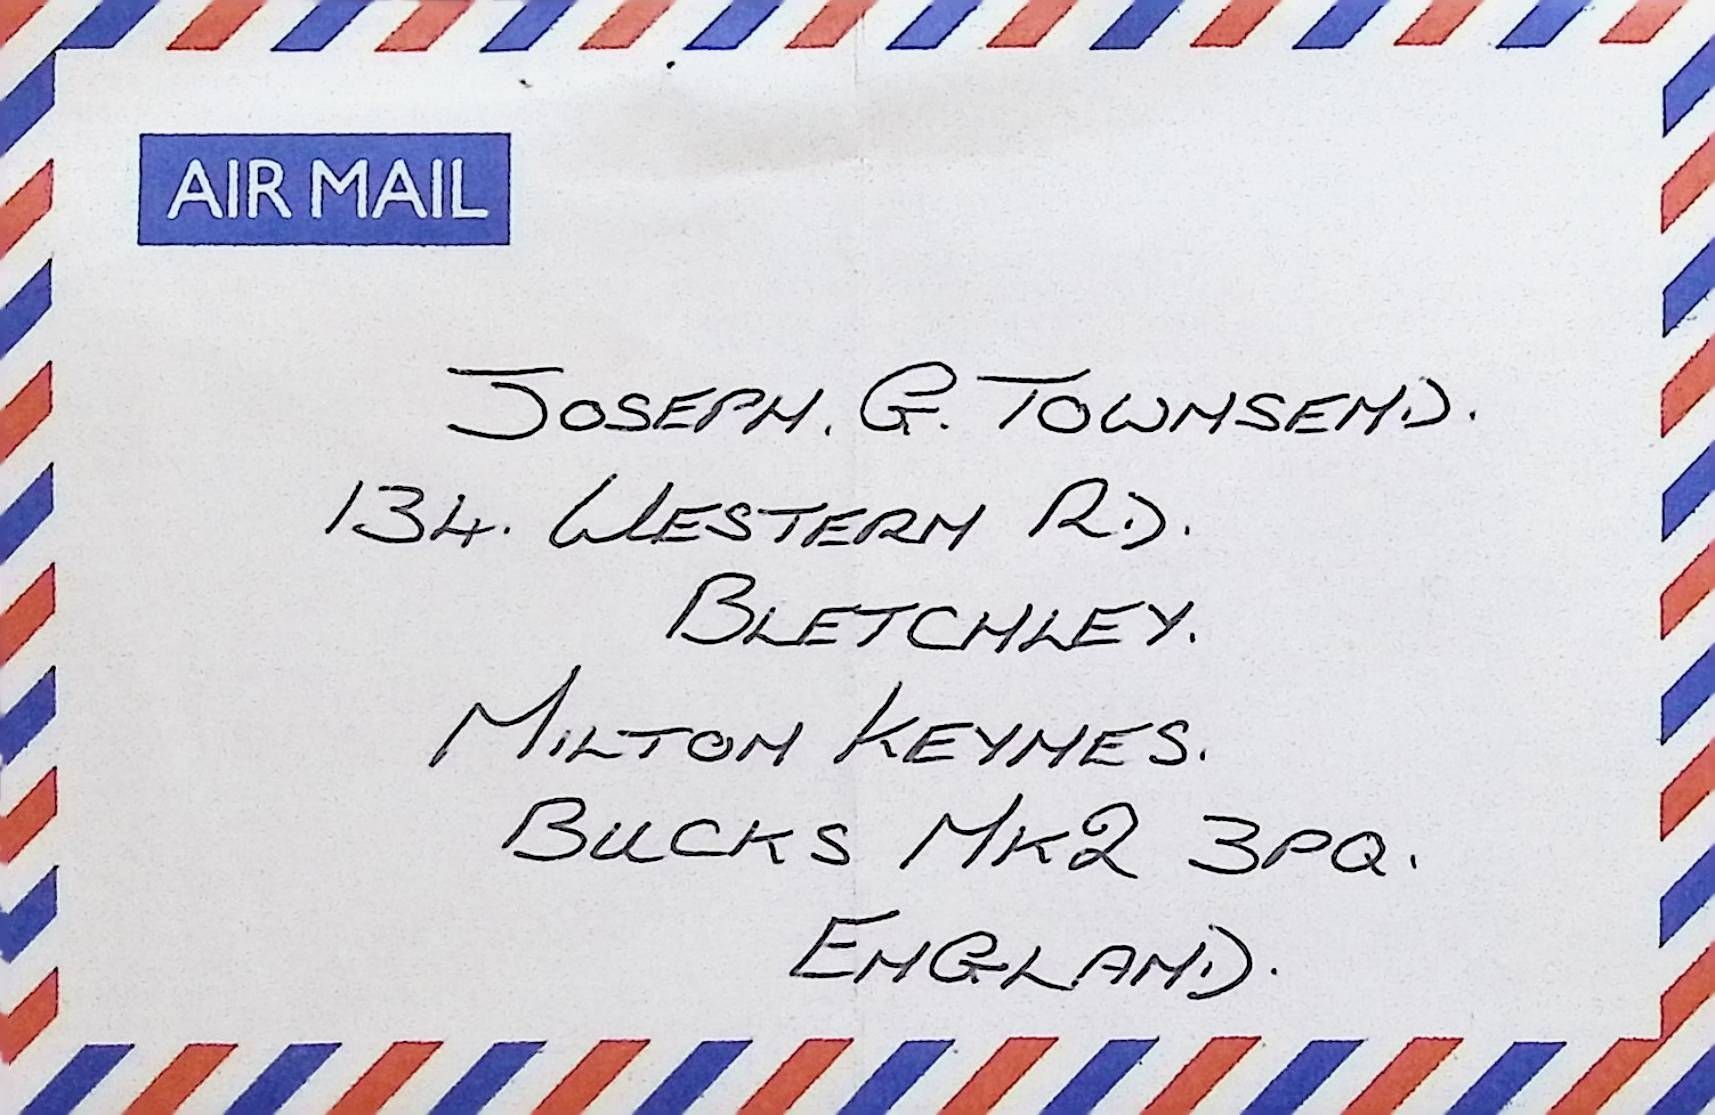 AIR MAIL
JOSEPH. G. TOWNSEND.
134. WESTERN RD.
BLETCHLEY.
MILTON KEYNES.
BUCKS MK2 3PQ.
ENGLAND.